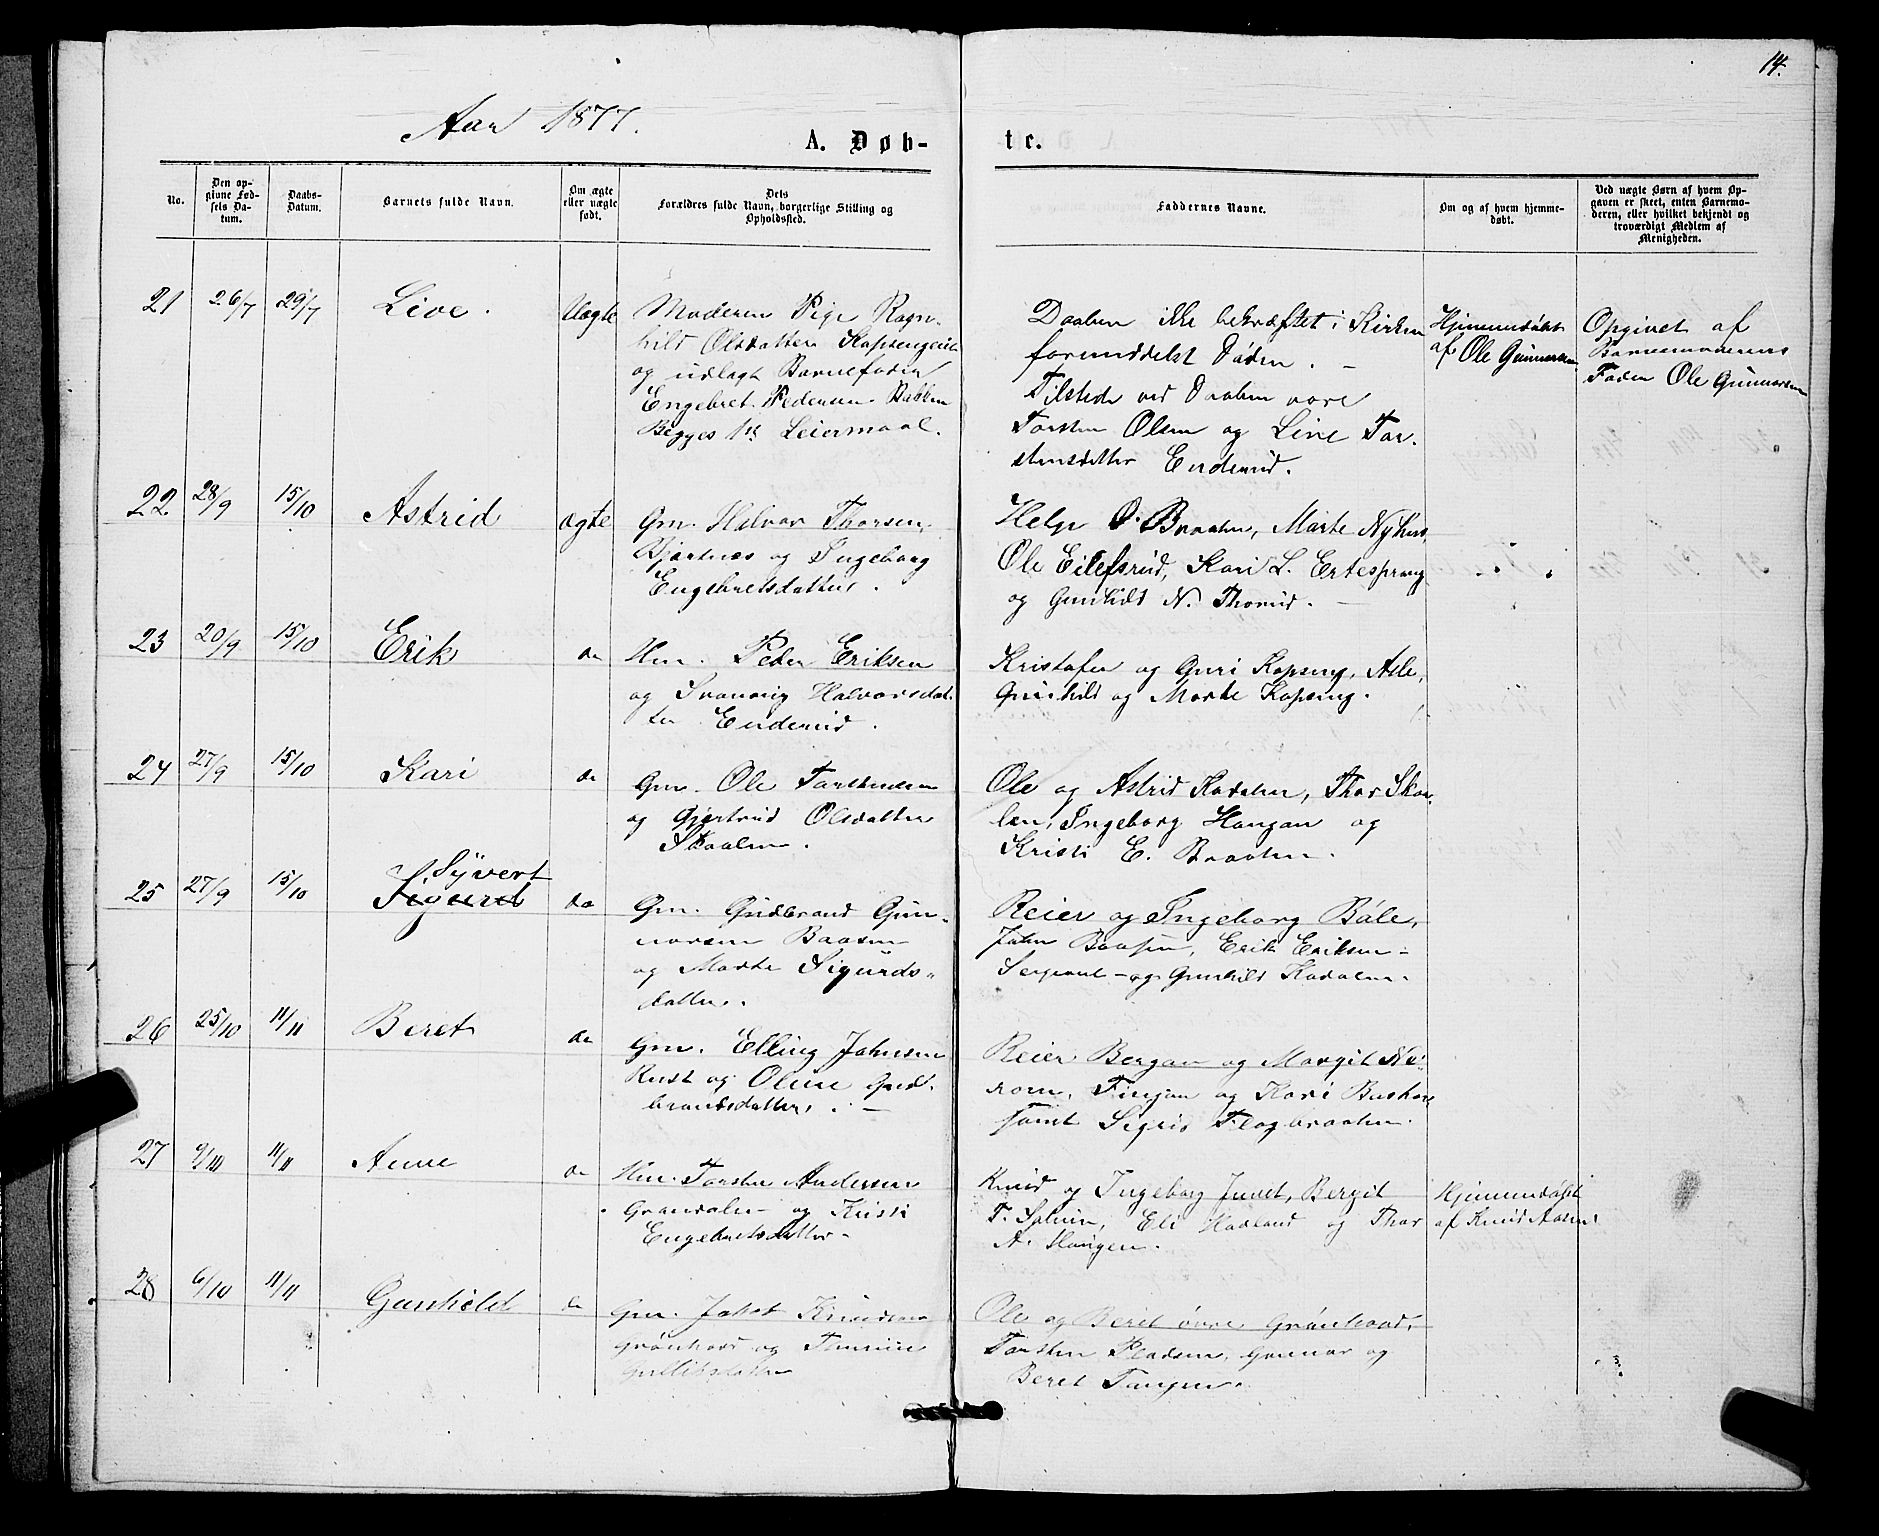 14.
Aar 1877.
A. Døb-
te.
No.
Den op-
givne Fød-
sels Da-
tum.
Daabs-
Datum.
Barnets fulde Navn.
Om ægte
eller uægte
født.
Dets
Forældres fulde Navn, borgerlige Stilling og
Opholdssted.
Faddernes Navne.
Om og af hvem hjemme-
døbt.
Ved uægte Børn af hvem Op-
gaven er skeet, enten Barnemo-
deren, eller hvilket bekjendt og
troværdigt Medlem af
Menigheden.
21
26/7
29/7
Live.
Uægte
Moderen Pige Ragn-
hild Olsdatter
og udlagt Barnefader
Engebret Pedersen Bakken
Begges 1ste Leiermaal.
Daaben ikke bekræftet i Kirken
formedelst Døden. –
Tilstede ved Daaben vare
Torsten Olsen og Live Tor-
stensdatter Enderud.
Hjemmedøbt
af Ole Gunnarsen
Opgivet af
Barnemoderens
Fader Ole Gunnarsen
22
28/9
15/10
Astrid
ægte
Gm. Halvor Thorsen
Bjertnæs og Ingeborg
Engebretsdatter.
Helge O. Braaten, Marte Nyhus,
Ole Eilefsrud, Kari L. Ertesprang
og Gunhild N. Thorud. –
23
20/9
15/10
Erik
do
Hm. Peder Eriksen
og Svanaug Halvorsdat-
ter Enderud.
Kristofer og Guri Kopseng, Asle,
Gunhild og Marte Kopseng.
24
27/9
15/10
Kari
do
Gm. Ole Torstensen
og Gjertrud Olsdatter
Skaalen.
Ole og Astrid Kadalen, Thor Skaa-
len, Ingeborg Haugan og
Kristi E. Braaten.
25
27/9
15/10
Syvert
Sigurd
do
Gm. Gudbrand Gun-
narsen Baasen
og Marte Sigurds-
datter.
Reier og Ingeborg Bøle,
John Baasen, Erik Eriksen –
Sergeant – og Gunhild Kadalen.
26
25/10
11/11
Beret
do
Gm. Elling Johnsen
Rust og Oline Gud-
brandsdatter. –
Reier Bergan og Margit Ne-
rom, Finjan og Kari
samt Sigrid Flagbraaten.
27
9/10
11/11
Anne
do
Hm. Torsten Andersen
Grandalen og Kristi
Engebretsdatter.
Knud og Ingeborg Juvet, Bergit
T. Eli Hadland og Thor
A. Haugen.
Hjemmedøbt
af Knud Aasen
28
6/10
11/11
Gunhild
do
Gm. Jakob Knudsen
Grønhovd og
Gulliksdatter
Ole og Beret øvre Grønhovd,
Torsten Pladsen, Gunnar og
Beret Tangen.